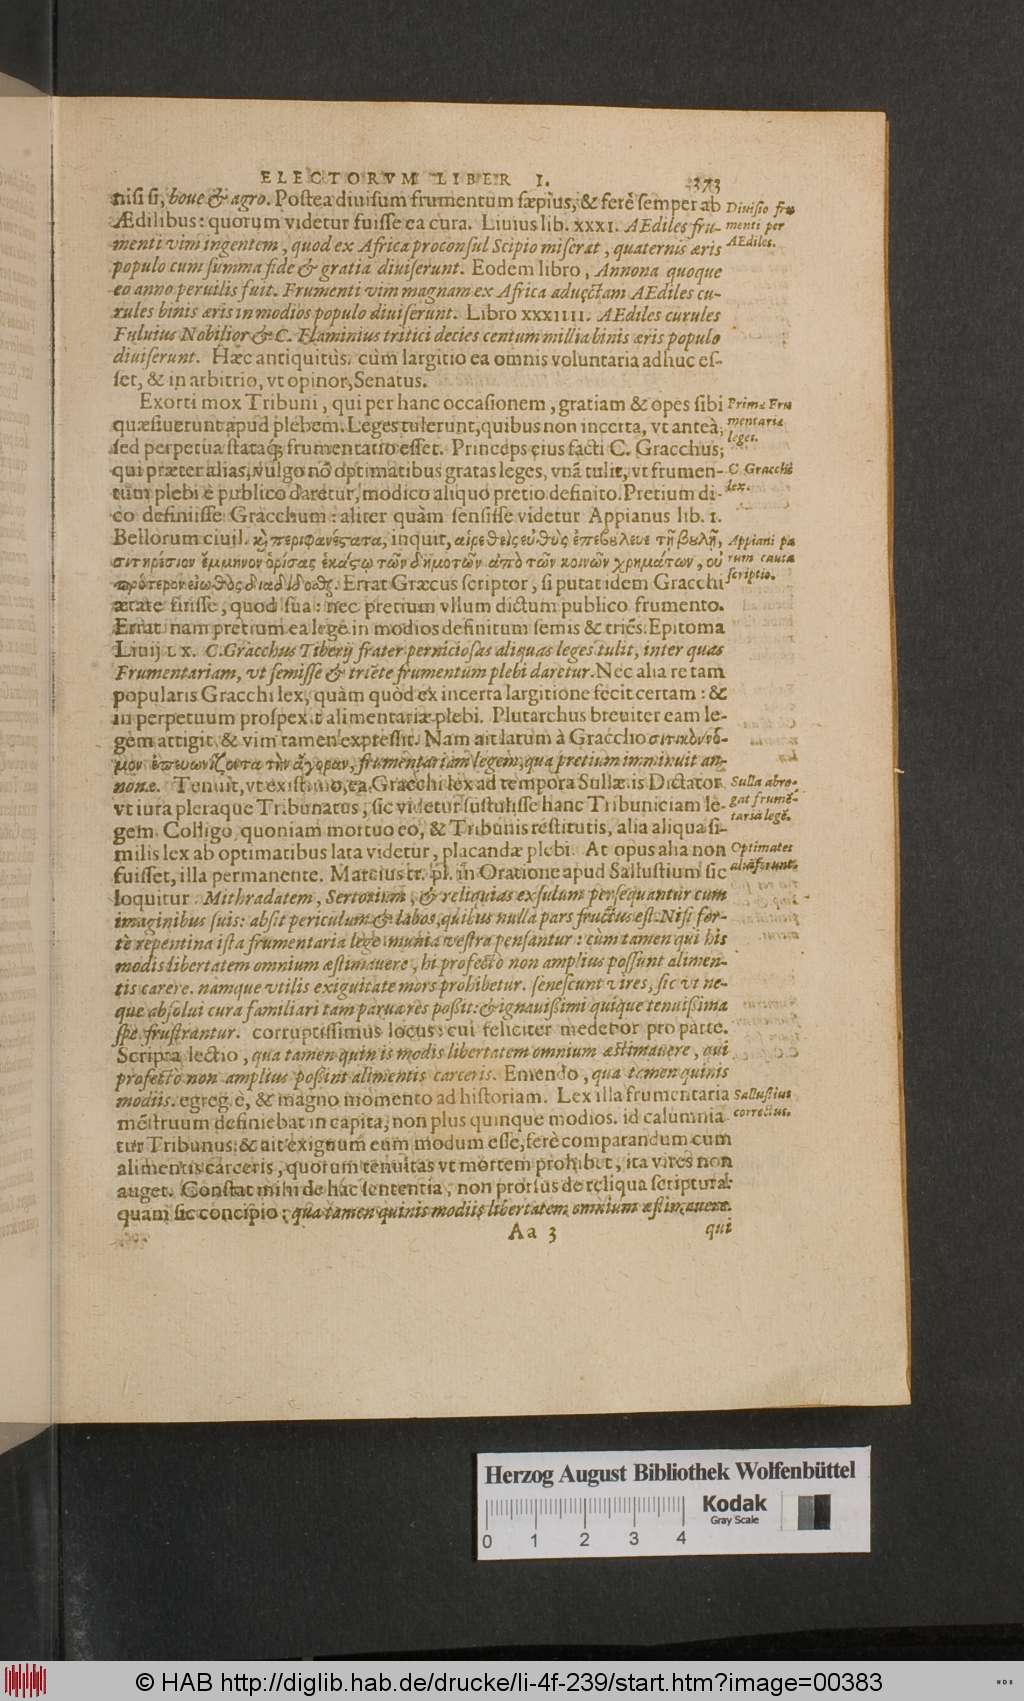 ELECTORVM LIBER I. 373
nisi si, boue & agro. Postea diuisum frumentum sæpius, & ferè semper ab
Ædilibus: quorum videtur fuisse ea cura. Liuius lib. XXXI. AEdiles fru-
menti vim ingentem, quod ex Africa proconsul Scipio miserat, quaternis æris
populo cum summa fide & gratia diuiserunt. Eodem libro, Annona quoque
eo anno peruilis fuit. Frumenti vim magnam ex Africa aduectam AEdiles cu-
rules binis æris in modios populo diuiserunt. Libro XXXIIII. AEdiles curules
Fuluius Nobilior & C. Flaminius tritici decies centum millia binis æris populo
diuiserunt. Hæc antiquitùs. cùm largitio ea omnis voluntaria adhuc es-
set, & in arbitrio, vt opinor, Senatus.
Exorti mox Tribuni, qui per hanc occasionem, gratiam & opes sibi
quæsiuerunt apud plebem. Leges tulerunt, quibus non incerta, vt anteà,
sed perpetua stataq́; frumentatio esset. Princeps eius facti C. Gracchus;
qui præter alias, vulgo nō optimatibus gratas leges, vnā tulit, vt frumen-
tum plebi è publico daretur, modico aliquo pretio definito. Pretium di-
co definiisse Gracchum: aliter quàm sensisse videtur Appianus lib. 1.
Bellorum ciuil. κ̀ περιφανέστατα, inquit, αἱρεθεὶς εὐθὺς ἐπεβούλευε τῇ βουλῇ,
σιτηρέσιον ἔμμηνον ὁρίσας ἑκάστῳ τῶν δημοτῶν ἀπὸ τῶν κοινῶν χρημάτων, οὐ
πρότερον εἰωθὸς διαδίδοσθαι. Errat Græcus scriptor, si putat idem Gracchi
ætate fuisse, quod sua: nec pretium vllum dictum publico frumento.
Errat. nam pretium ea lege in modios definitum semis & triēs. Epitoma
Liuij LX. C. Gracchus Tiberij frater perniciosas aliquas leges tulit, inter quas
Frumentariam, vt semisse & triēte frumentum plebi daretur. Nec alia re tam
popularis Gracchi lex, quàm quòd ex incerta largitione fecit certam: &
in perpetuum prospexit alimentariæ plebi. Plutarchus breuiter eam le-
gem attigit, & vim tamen expressit. Nam ait latum à Graccho σιτικὸν νό-
μον ἐπευωνίζοντα τὴν ἀγοραν, frumentariam legem, qua pretium imminuit an-
nonæ. Tenuit, vt existimo, ea Gracchi lex ad tempora Sullæ. is Dictator
vt iura pleraque Tribunatus, sic videtur sustulisse hanc Tribuniciam le-
gem. Colligo, quoniam mortuo eo, & Tribunis restitutis, alia aliqua si-
milis lex ab optimatibus lata videtur, placandæ plebi. At opus alia non
fuisset, illa permanente. Marcius tr. pl. in Oratione apud Sallustium sic
loquitur. Mithradatem, Sertorium, & reliquias exsulum persequantur cum
imaginibus suis: absit periculum & labos, quibus nulla pars fructus est: Nisi for-
tè repentina ista frumentaria lege munia vestra pensantur: cùm tamen qui his
modis libertatem omnium æstimauere, hi profectò non amplius possunt alimen-
tis carere. namque vtilis exiguitate mors prohibetur. senescunt vires, sic vt ne-
que absolui cura familiari tam parua res poßit: & ignauißimi quique tenuißima
spe frustrantur. corruptissimus locus: cui feliciter medebor pro parte.
Scripta lectio, qua tamen quin is modis libertatem omnium æstimauere, qui
profectò non amplius poßint alimentis carceris. Emendo, qua tamen quinis
modiis. egregiè, & magno momento ad historiam. Lex illa frumentaria
mēstruum definiebat in capita, non plus quinque modios. id calumnia-
tur Tribunus: & ait exiguum eum modum esse, ferè comparandum cum
alimentis carceris, quorum tenuitas vt mortem prohibet, ita vires non
auget. Constat mihi de hac sententia, non prorsus de reliqua scriptura:
quam sic concipio: qua tamen quinis modiis libertatem omnium æstimauere.
Aa 3 qui
Diuisio fru
menti per
AEdiles.
Primæ Fru
mentariæ
leges.
C Gracchi
lex.
Appiani pa
rum cauta
scriptio.
Sulla abro-
gat frumē-
tariā legē.
Optimates
aliā ferunt.
Sallustius
correctus.
Herzog August Bibliothek Wolfenbüttel
Kodak
Gray Scale
0 1 2 3 4
© HAB http://diglib.hab.de/drucke/li-4f-239/start.htm?image=00383